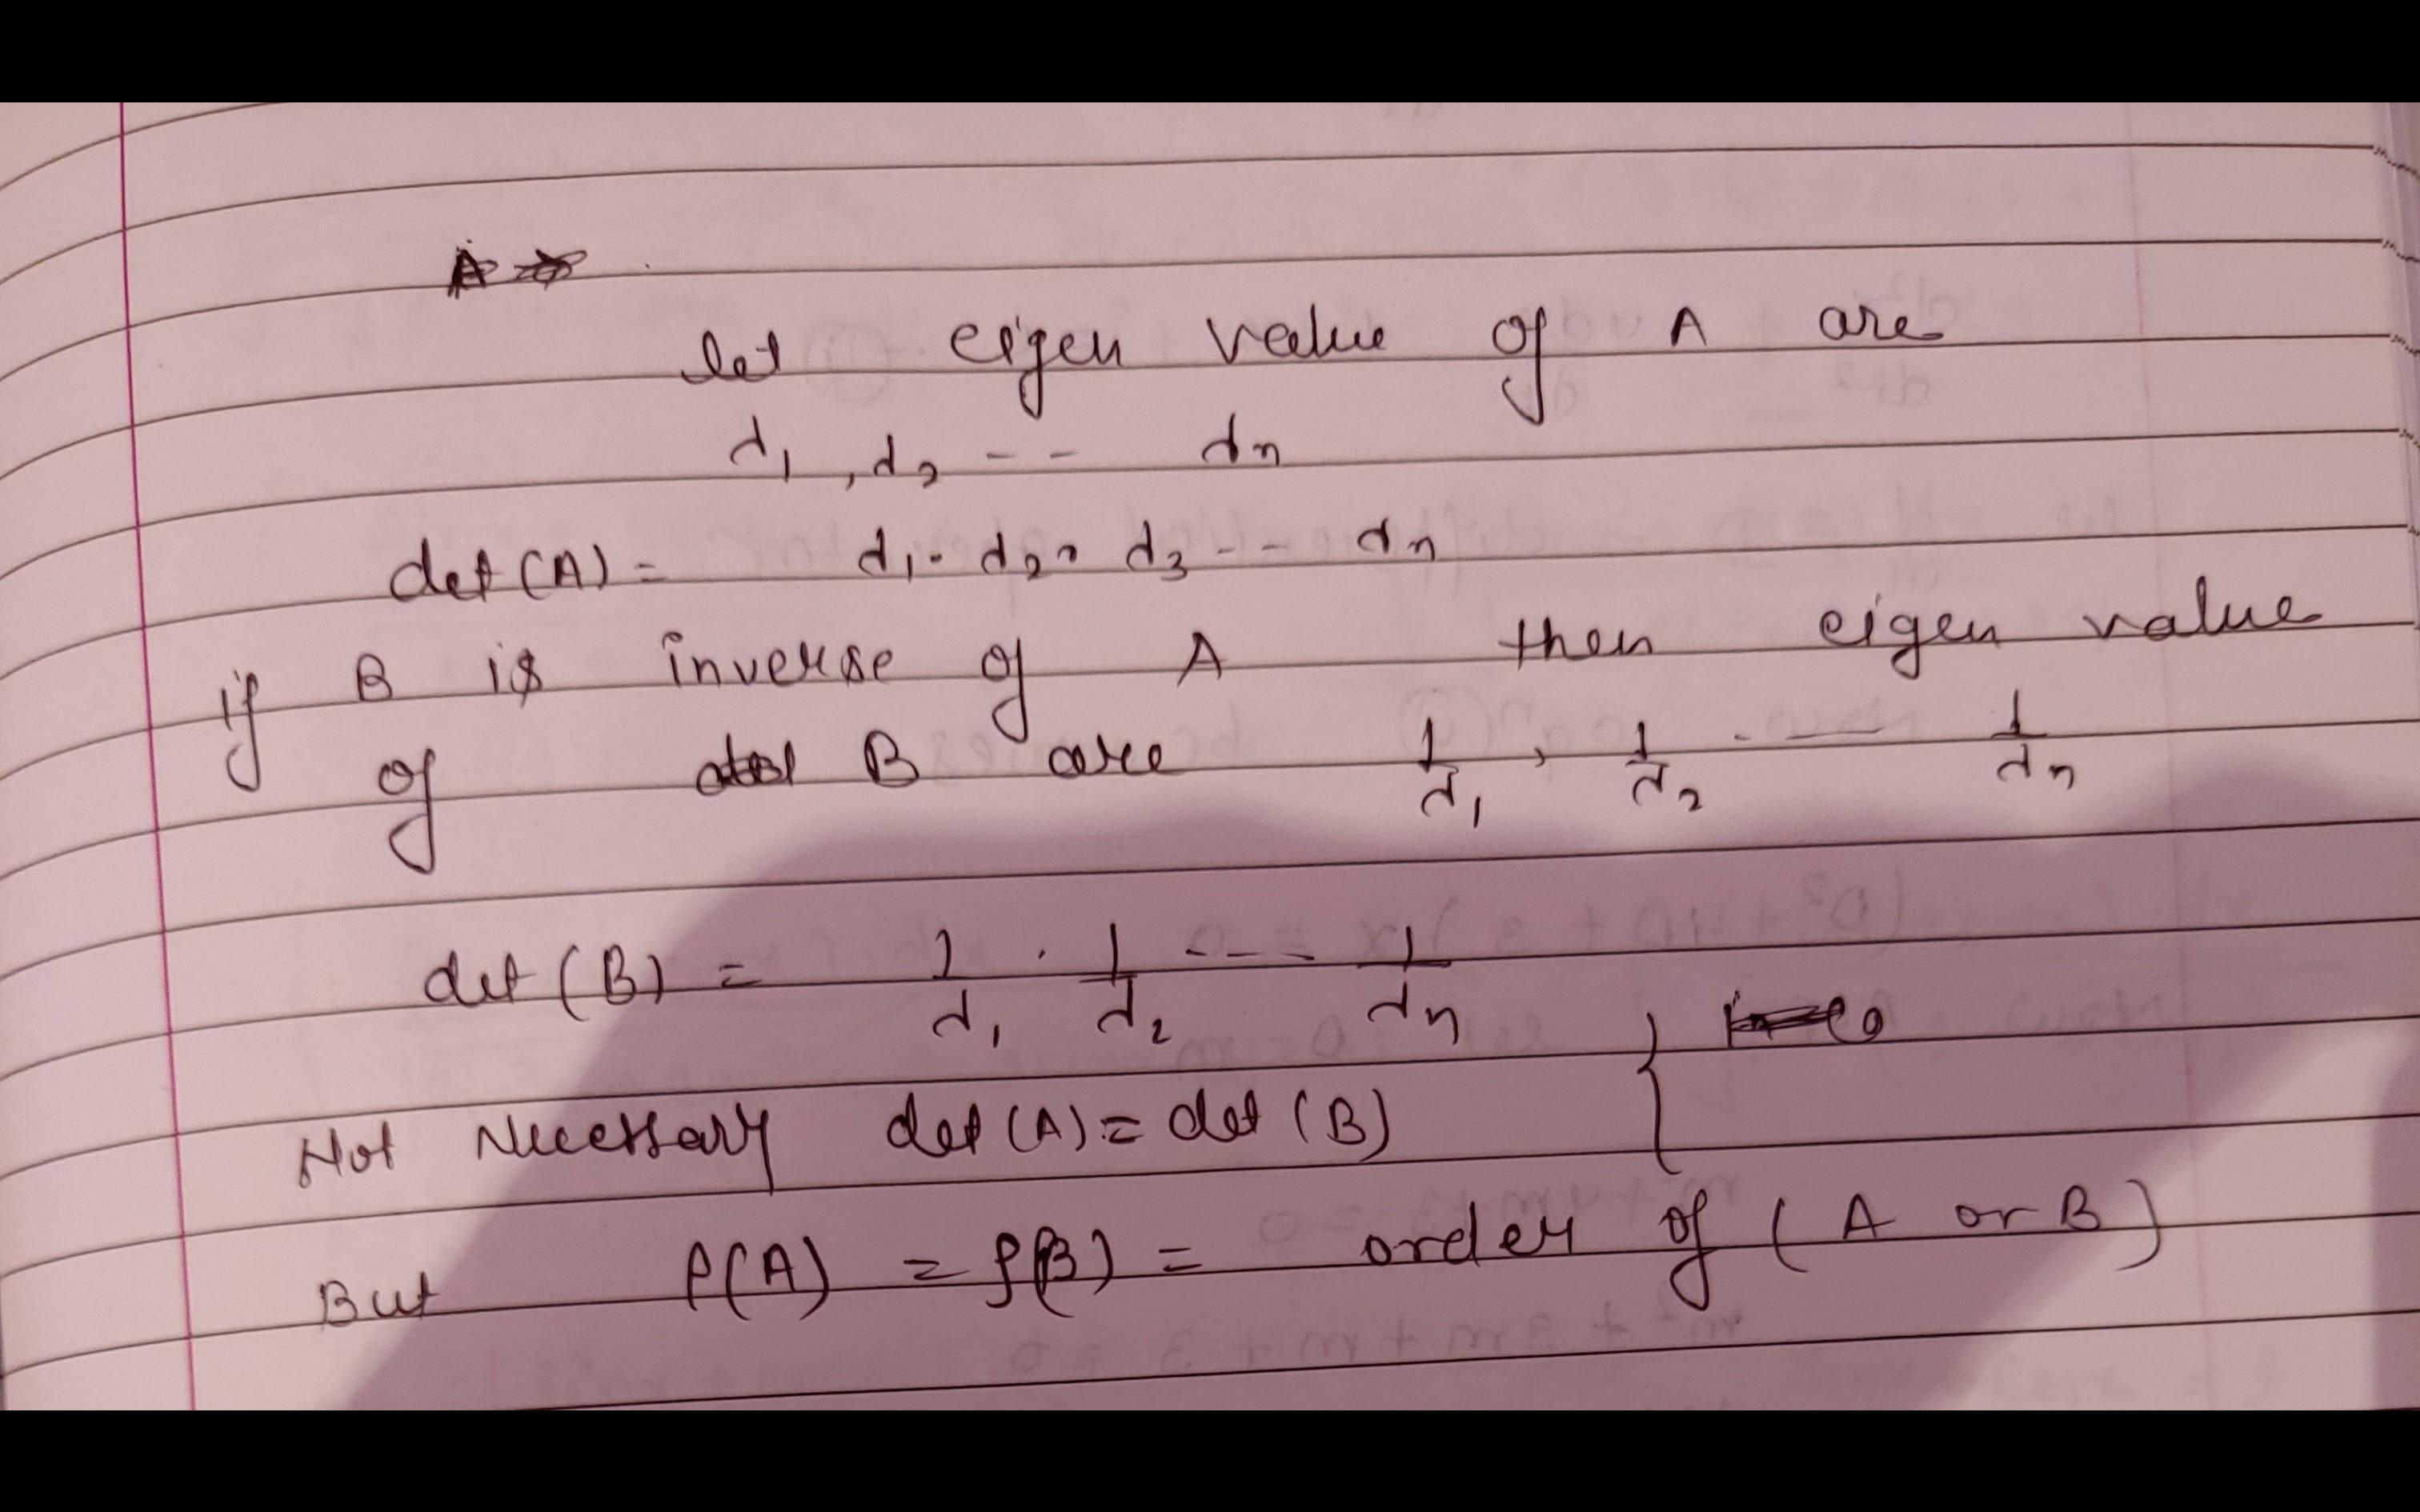 let eigen value of A are
λ1, λ2 -- λn
det (A) = λ1. λ2. λ3 -- λn
if B is inverse of A then eigen value
of B are 1/λ1, 1/λ2 --- 1/λn
det (B) = 1/λ1 . 1/λ2 --- 1/λn
Not Necessary det (A) = det (B) }
But ρ(A) = ρ(B) = order of (A or B)